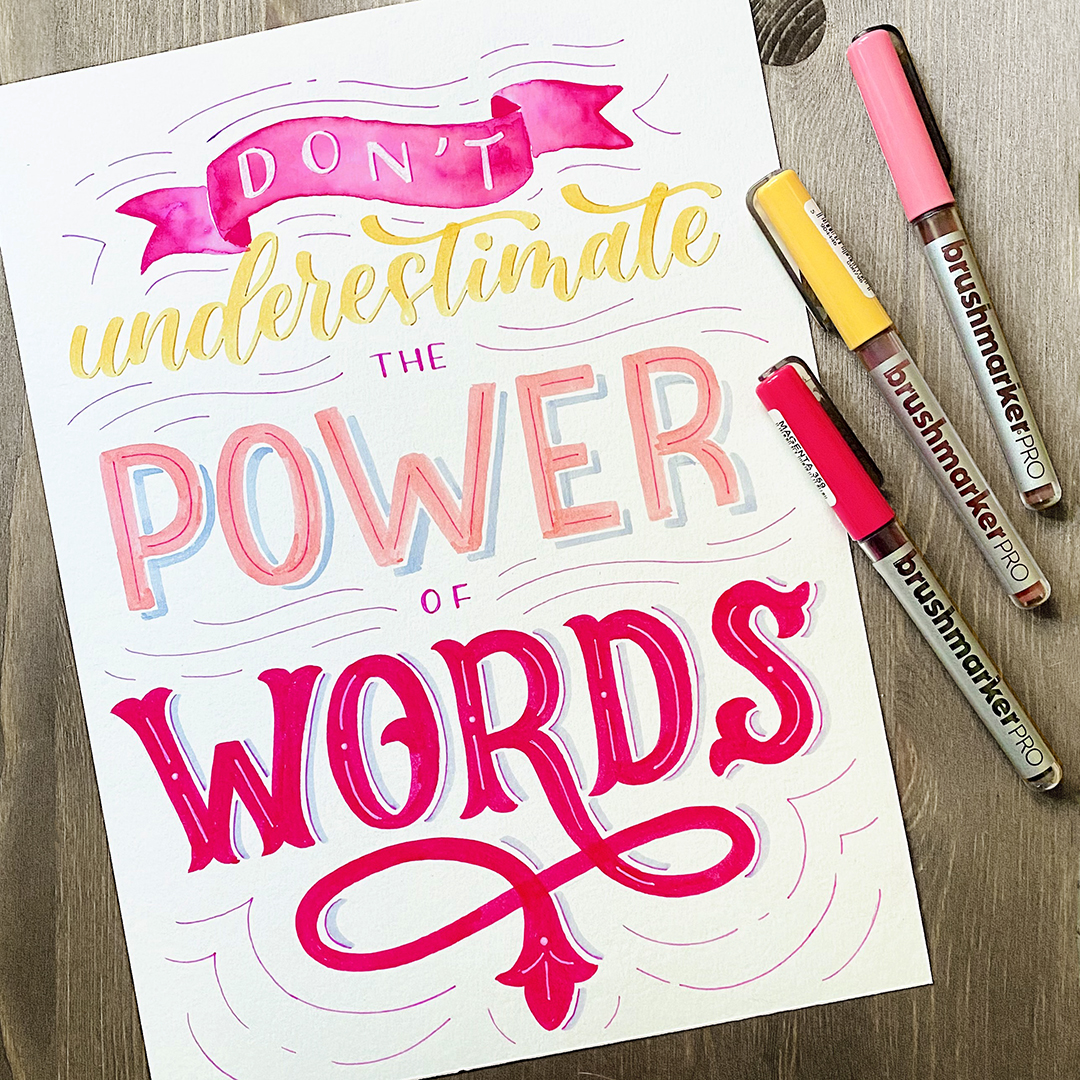 DON'T
underestimate
THE
POWER
OF
WORDS
brushmarkerPRO
brushmarkerPRO
MAGENTA 359
brushmarkerPRO